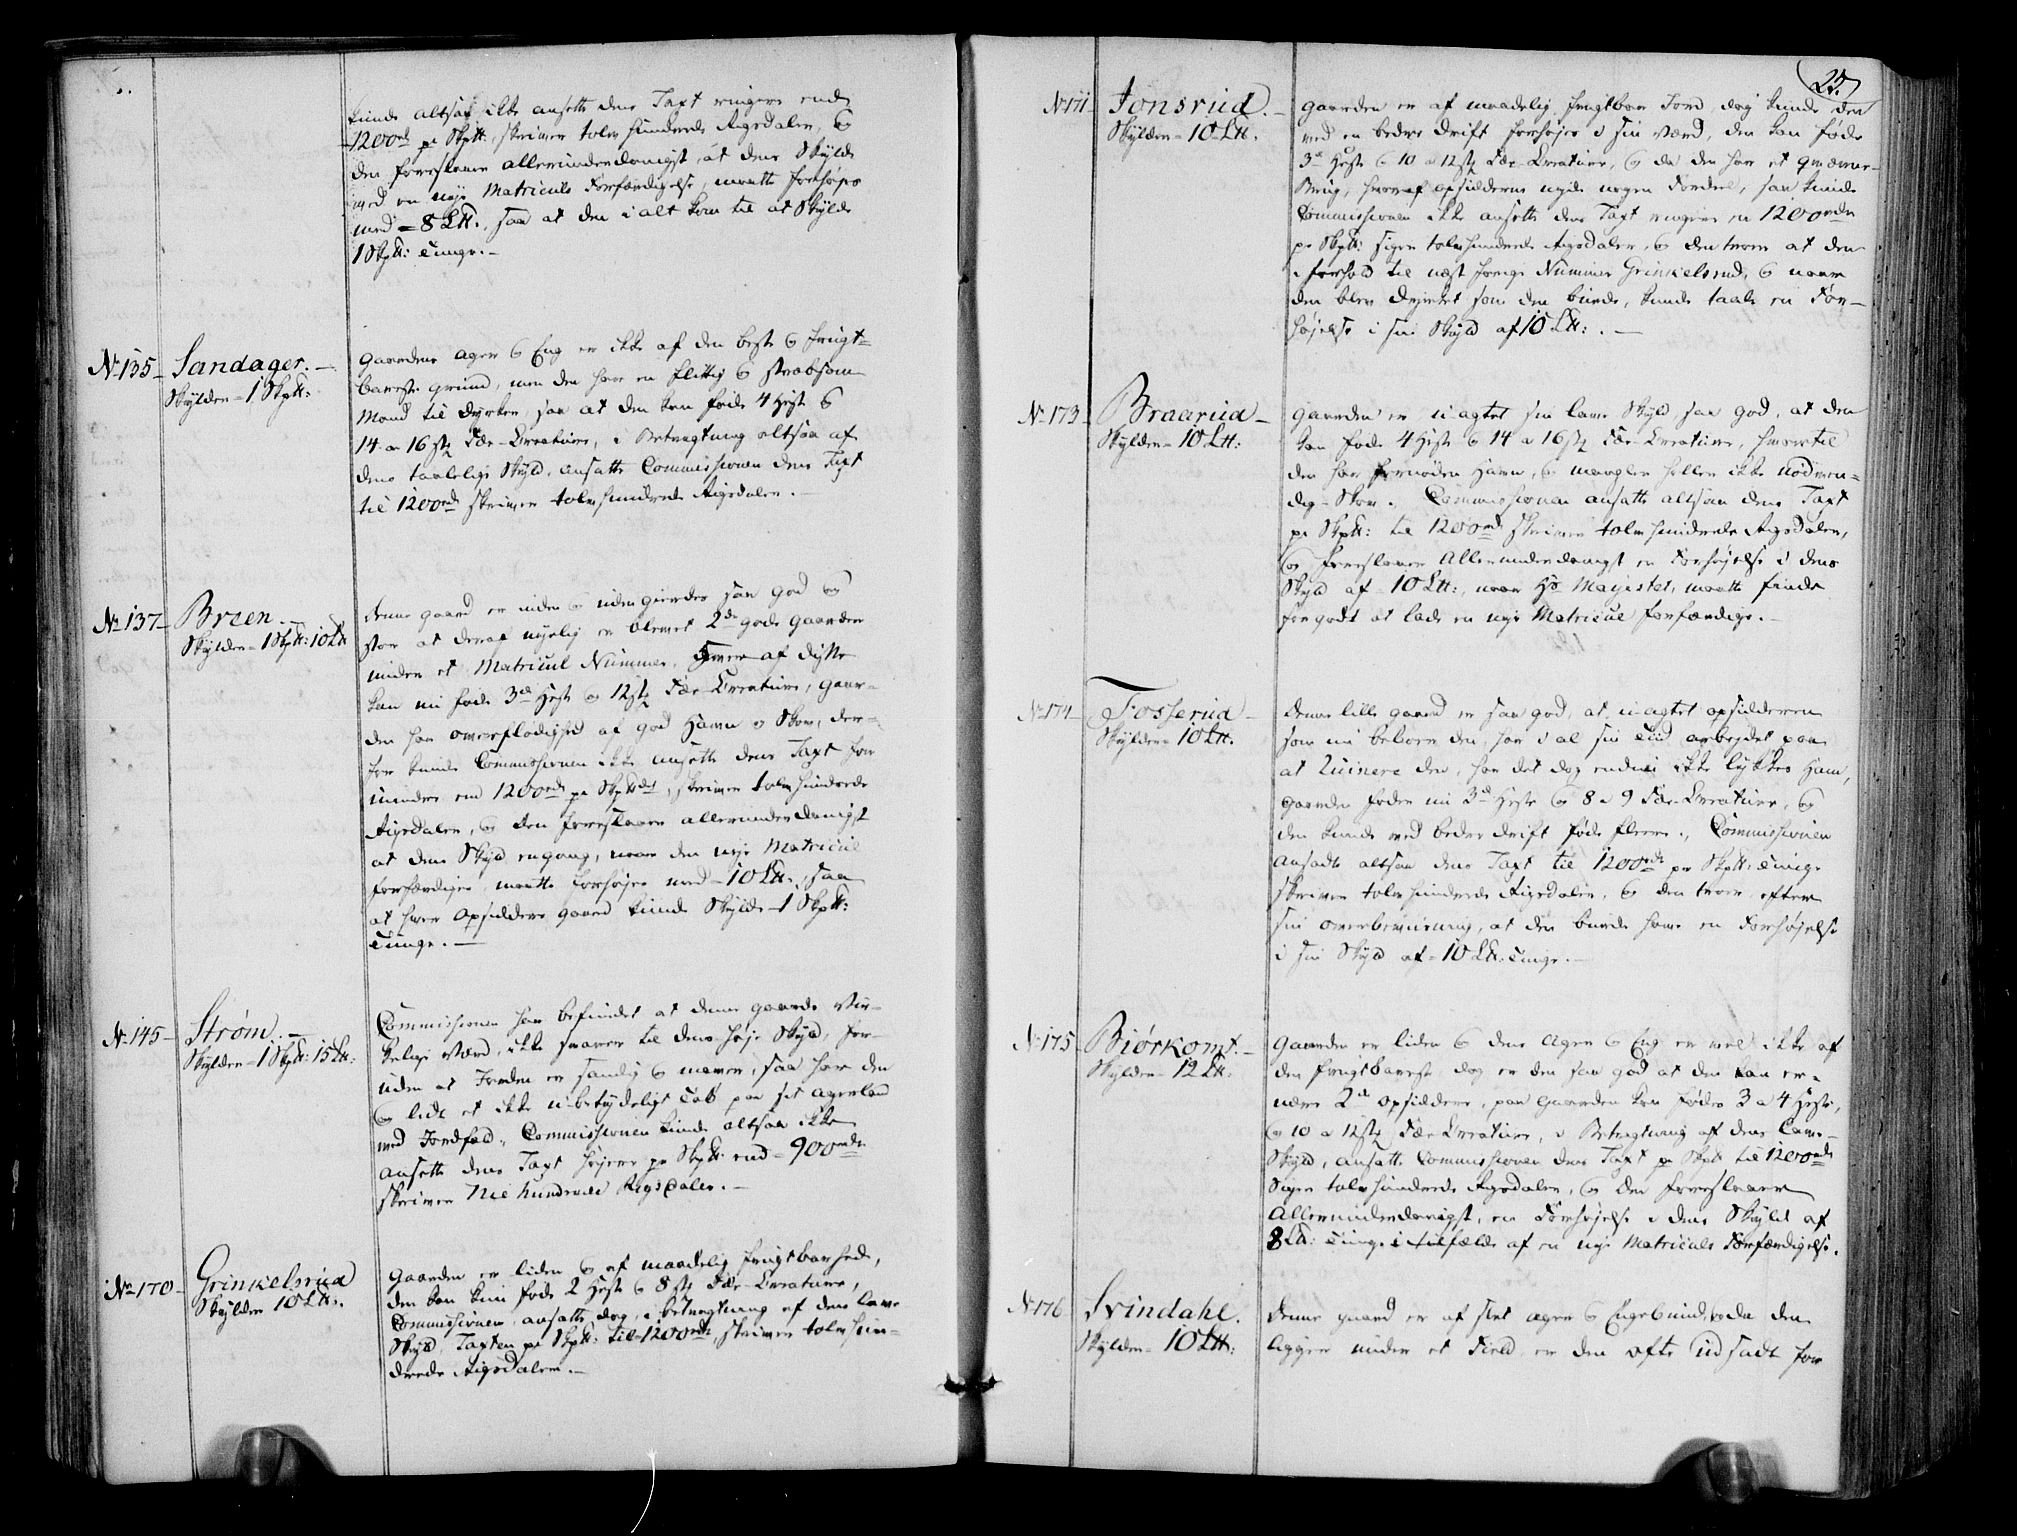 kunde altsaa ikke ansætte dens Taxt ringere end
1200rd pr Skp℔: skriver tolv hundrede Rigsdaler, og
den foreslaaer allerunderdanigst, at dens Skyld
ved en nye Matriculs Forfærdigelse, maatte forhøjes
med = 8 L℔:, saa at den i alt kom til at Skylde
1 Skp℔: Tunge. —
No 135 – Sandager. —
Skylder – 1 Skp℔:
Gaardens ager og Eng er ikke af den beste og frugt=
bareste grund, men den har en flittig og stræbsom
Mand til dyrker, saa at den kan føde 4 Heste og
14 a 16 stk Fæe-Creature, i Betragtning altsaa af
dens taalelige Skyld, ansatte Commissionen dens Taxt
til 1200rd skriver tolv hundrede Rigsdaler. —
No 137 – Breen. —
Skylder – 1 Skp℔: 10 L℔
denne gaard er inden og uden gierdes saa god og
stor at deraf nyelig er blevet 2de gode gaarder
under et Matricul Nummer, hver af disse
kan nu føde 3de Heste og 12 stk Fæe-Creature, gaar-
den har overflødighed af god Havn og Skov, der-
for kunde Commissionen ikke ansætte dens Taxt for
mindre end 1200rd pr Skp℔d, skriver tolv hundrede
Rigsdaler, og den foreslaaer allerunderdanigst
at dens Skyld engang, naar den nye Matricul
forfærdiges, maatte forhøjes med – 10 L℔:, saa
at hver opsidders gaard kunde Skylde – 1 Skp℔:
Tunge. —
No 145 – Strøm. —
Skylder – 1 Skp℔: 15 L℔:
Commissionen har befundet at denne gaards Vir-
kelige Værd, ikke svarer til dens høje Skyld, for-
uden at Jorden er sandig og mager, saa har den
og lidt et ikke u-betydeligt Tab paa sit agerland
med Jordfald., Commissionen kunde altsaa ikke
ansætte dens Taxt højere pr Skp℔ end – 900rd
skriver Nie hundrede Rigsdaler. —
No 170 – Grinkelsrud
Skylder 10 L℔:.
Gaarden er liden og af maadelig frugtbarhed,
den kan kun føde 2 Heste og 8 stk Fæe-Creature,
Commissionen ansatte dog, i betragtning af dens lave
Skyld, Taxten pr Skp℔: til 1200rd, skriver tolv hun-
drede Rigsdaler. —
25.
No 171 – Jonsrud. —
Skylder – 10 L℔.
Gaarden er af maadelig frugtbar Jord, dog kunde den
ved en bedre drift forhøjes i sin Værd, den kan føde
3de Heste og 10 a 12 stk Fæe-Creature, og da den har et qværne-
Brug, hvoraf opsidderne nyde nogen Fordeel, saa kunde
Commissionen ikke ansætte dens Taxt ringere en 1200rd
pr Skp℔: siger tolv hundrede Rigsdaler, og den troer at den
i forhold til næst forrige Nummer Grinkelsrud, og naar
den blev dyrket som den burde, kunde taale en For-
højelse i sin Skyld af 10 L℔:. —
No 173 – Braarud –
Skylder – 10 L℔:
Gaarden er uagtet sin lave Skyld, saa god, at den
kan føde 4 Heste og 14 a 16 stk Fæe-Creature, hvortil
den har fornøden Havn, og mangler heller ikke nødven-
dig Skov. Commissionen ansatte altsaa dens Taxt
pr Skp℔: til 1200rd skriver tolv hundrede Rigsdaler,
og foreslaaer Allerunderdanigst en Forhøjelse i dens
Skyld af – 10 L℔:, naar Hs Majestet, maatte finde
for godt at lade en nye Matricul forfærdige. —
No 174 – Fosserud –
Skylder – 10 L℔.
Denne lille gaard er saa god, at uagtet opsidderen
som nu beboer den, har i al sin Tid arbejdet paa
at Ruinere den, har det dog endnu ikke lykkes ham,
gaarden føder nu 3de Heste og 8 a 9 Fæe-Creature, og
den kunde ved bedre drift føde fleere., Commissionen
ansadte altsaa dens Taxt til 1200rd pr Skp℔: Tunge
skriver tolv hundrede Rigsdaler, og den troer efter
sin overbeviisning, at den burde have en Forhøjelse
i sin Skyld af – 10 L℔: Tunge. —
No 175 – Biørkomt. –
Skylder – 12 L℔:
Gaarden er liden og dens Ager og Eng er vel ikke af
den frugtbareste, dog er den saa god at den kan er-
nære 2de opsiddere, paa gaarden kan fødes 3 a 4 Heste,
og 10 a 12 stk Fæe-Creature, i Betragtning af dens lave
Skyld, ansatte Commissionen dens Taxt pr Skp℔ til 1200rd
Siger tolv hundrede Rigsdaler, og den foreslaaer
Allerunderdanigst, en Forhøjelse i dens Skyld af
8 L℔: Tunge i tilfælde af en nye Matriculs Forfærdigelse.
No 176 – Svindahl.
Skylder – 10 L℔:
Denne gaard er af slet ager og Engebund, og da den
ligger under et Field, er den ofte udsadt for